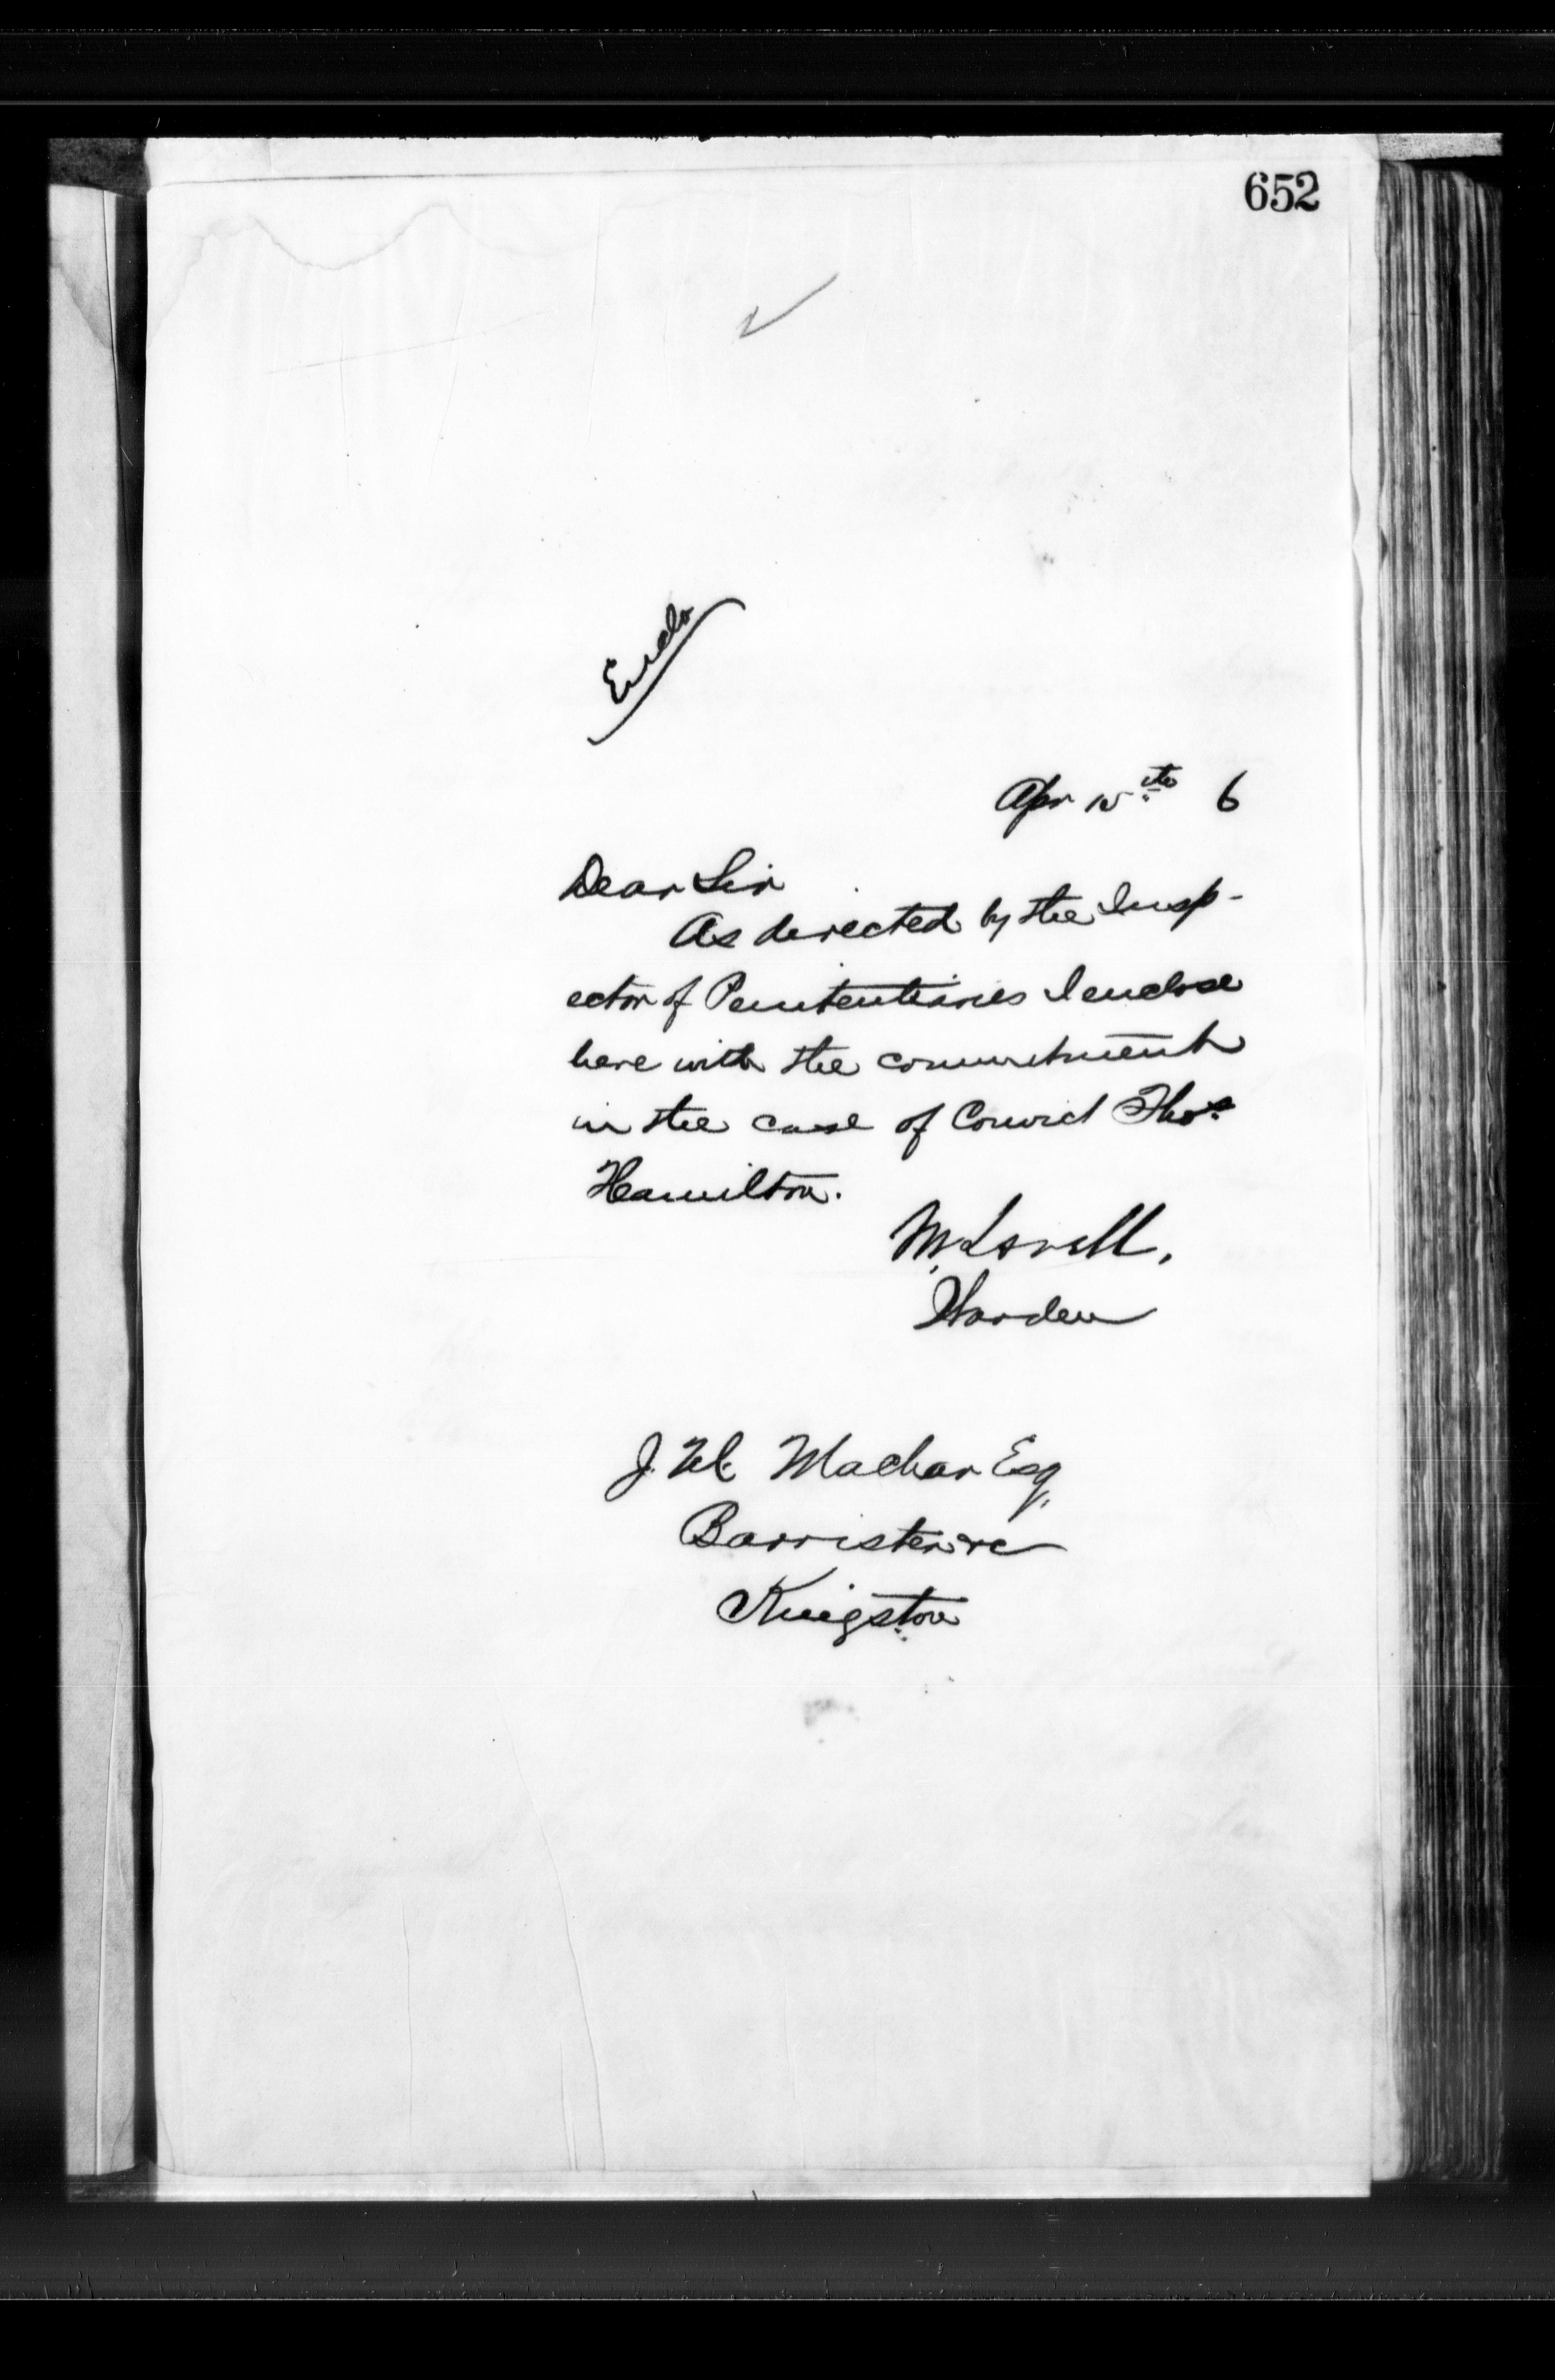 652
Enclo
Apr 15th 6
Dear Sir
As directed by the Insp-
ector of Penitentiaries I enclose
here with the commitment
in the case of Convict Thos.
Hamilton.
M. Lavell,
Warden
J. M. Machar Esq,
Barrister &c
Kingston